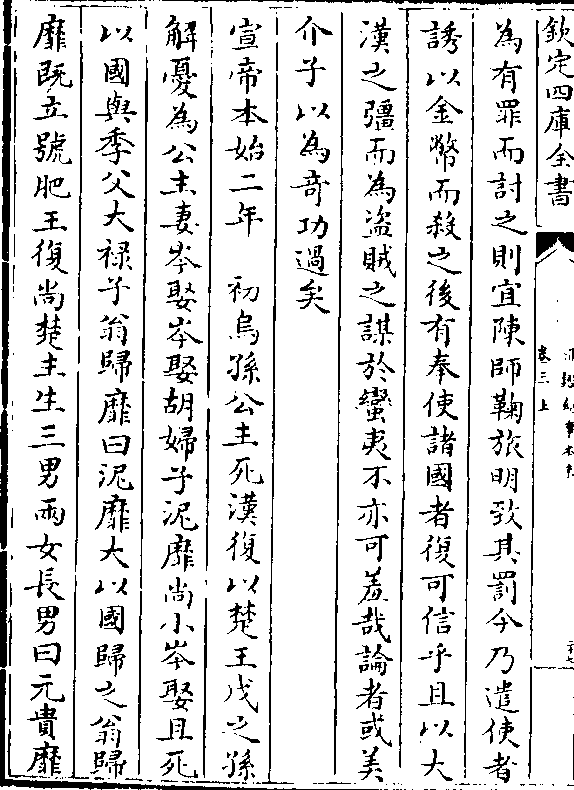 欽定四庫全書
卷三上
為有罪而討之則宜陳師鞠旅明致其罰今乃遣使者
誘以金幣而殺之後有奉使諸國者復可信乎且以大
漢之彊而為盜賊之謀於蠻夷不亦可羞哉論者或美
介子以為奇功過矣
宣帝本始二年　初烏孫公主死漢復以楚王戊之孫
解憂為公主妻岑娶岑娶胡婦子泥靡尚小岑娶且死
以國與季父大祿子翁歸靡曰泥靡大以國歸之翁歸
靡既立號肥王復尚楚主生三男兩女長男曰元貴靡